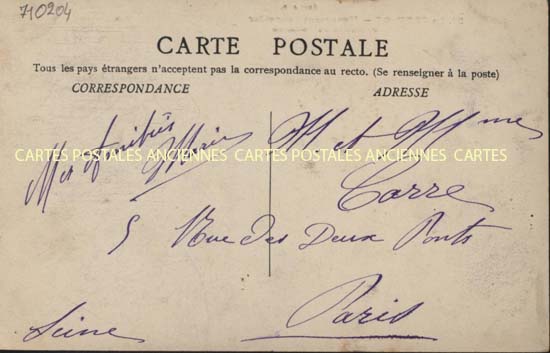 710204
CARTE POSTALE
Tous les pays étrangers n'acceptent pas la correspondance au recto. (Se renseigner à la poste)
CORRESPONDANCE
ADRESSE
Mes Amitiés
Marie
M. et Mme
CARTES POSTALES ANCIENNES CARTES POSTALES ANCIENNES CARTES
Carre
5 Rue des Deux Ponts
Paris
Seine